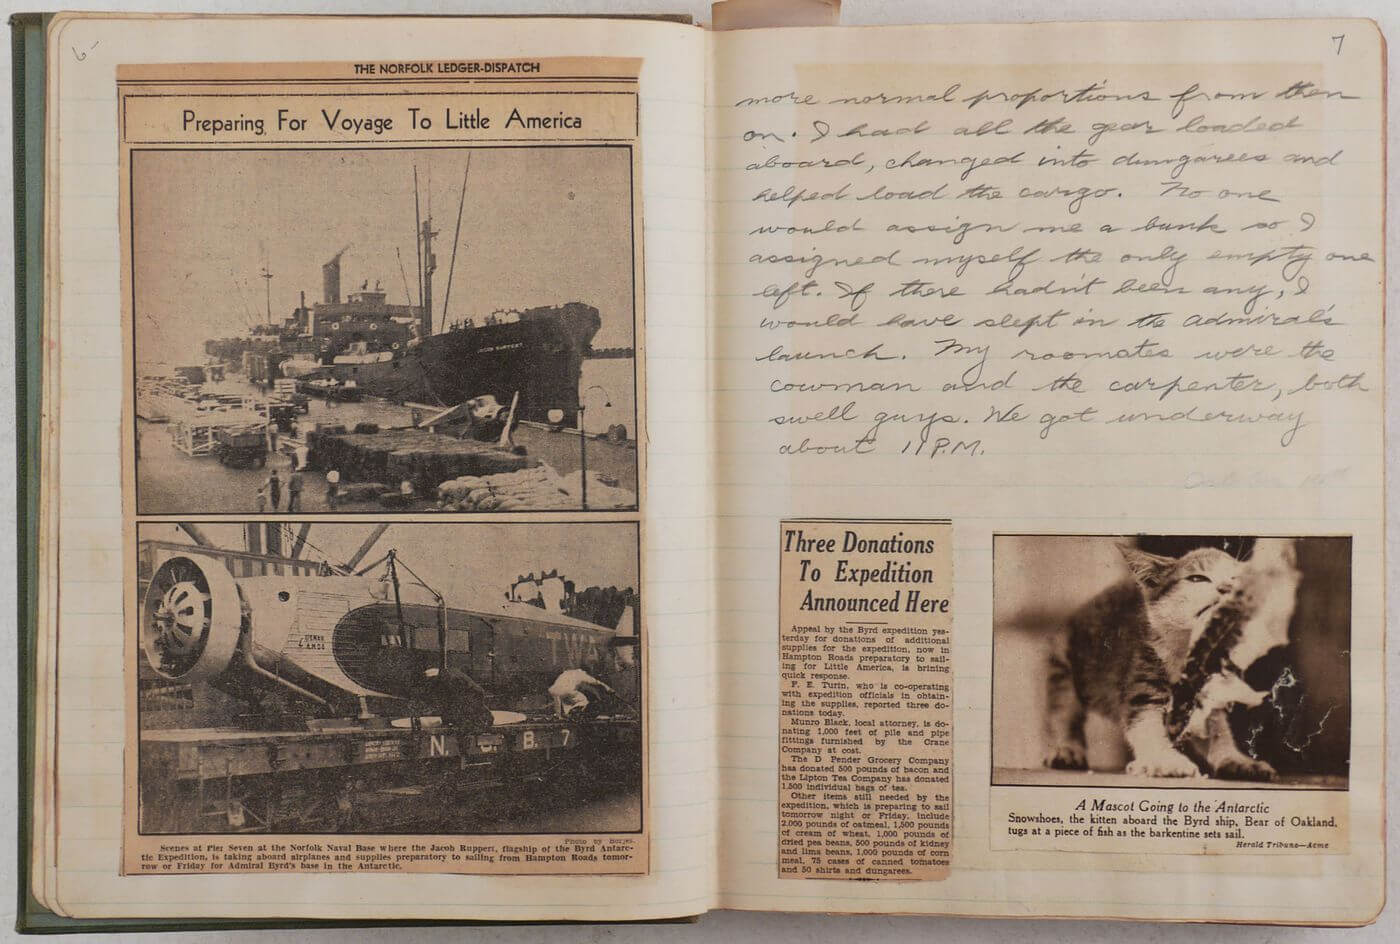 6-
THE NORFOLK LEDGER-DISPATCH
Preparing For Voyage To Little America
JACOB RUPPERT
TWA
N. & B. 7
Photo by Borjes.
Scenes at Pier Seven at the Norfolk Naval Base where the Jacob Ruppert, flagship of the Byrd Antarc-
tic Expedition, is taking aboard airplanes and supplies preparatory to sailing from Hampton Roads tomor-
row or Friday for Admiral Byrd's base in the Antarctic.
7
more normal proportions from then
on. I had all the gear loaded
aboard, changed into dungarees and
helped load the cargo. No one
would assign me a bunk so I
assigned myself the only empty one
left. If there hadn't been any, I
would have slept in the admiral's
launch. My roomates were the
cowman and the carpenter, both
swell guys. We got underway
about 11 P.M.
Three Donations
To Expedition
Announced Here
Appeal by the Byrd expedition yes-
terday for donations of additional
supplies for the expedition, now in
Hampton Roads preparatory to sail-
ing for Little America, is brining
quick response.
F. E. Turin, who is co-operating
with expedition officials in obtain-
ing the supplies, reported three do-
nations today.
Munro Black, local attorney, is do-
nating 1,000 feet of pile and pipe
fittings furnished by the Crane
Company at cost.
The D Pender Grocery Company
has donated 500 pounds of bacon and
the Lipton Tea Company has donated
1,500 individual bags of tea.
Other items still needed by the
expedition, which is preparing to sail
tomorrow night or Friday, include
2,000 pounds of oatmeal, 1,500 pounds
of cream of wheat, 1,000 pounds of
dried pea beans, 500 pounds of kidney
and lima beans, 1,000 pounds of corn
meal, 75 cases of canned tomatoes
and 50 shirts and dungarees.
A Mascot Going to the Antarctic
Snowshoes, the kitten aboard the Byrd ship, Bear of Oakland,
tugs at a piece of fish as the barkentine sets sail.
Herald Tribune—Acme